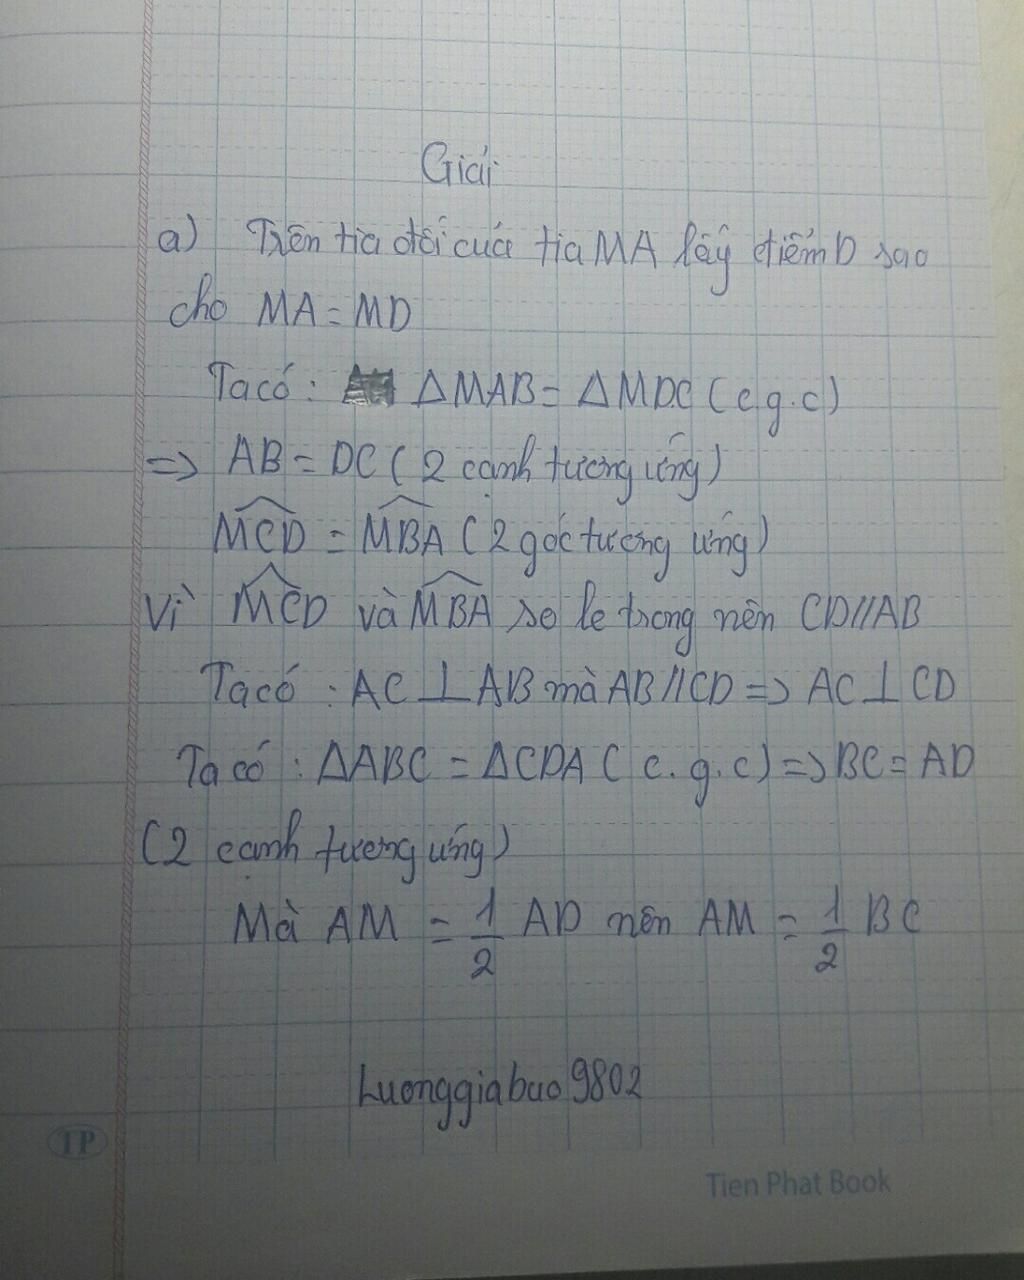 Giải
a) Trên tia đối của tia MA lấy điểm D sao
cho MA = MD
Ta có : ΔMAB = ΔMDC ( c.g.c )
=> AB = DC ( 2 cạnh tương ứng )
\widehat{MCD} = \widehat{MBA} ( 2 góc tương ứng )
Vì \widehat{MCD} và \widehat{MBA} so le trong nên CD//AB
Ta có : AC ⊥ AB mà AB // CD => AC ⊥ CD
Ta có : ΔABC = ΔCDA ( c.g.c ) => BC = AD
( 2 cạnh tương ứng )
Mà AM = 1/2 AD nên AM = 1/2 BC
Luonggiabao9802
TP
Tien Phat Book